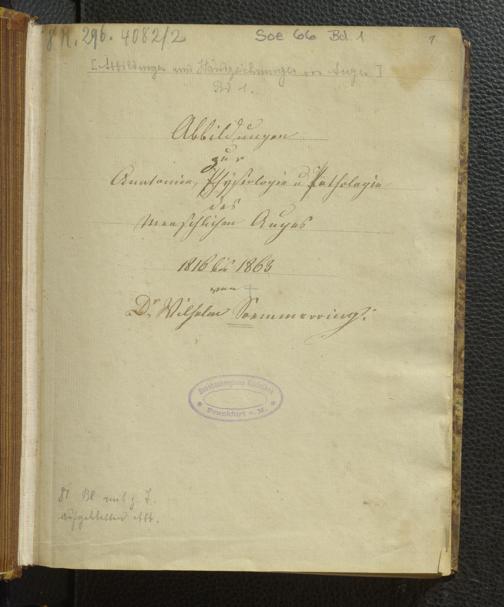 8 N. 296. 4082/2 Soe 66 Bd. 1 1
[Abbildungen und Handzeichnungen von Augen]
Bd 1.
Abbildungen
zur
Anatomie, Physiologie u Pathologie
des
Menschlichen Auges
1816 bis 1868
von
Dr Wilhelm Soemmerring.
Senckenbergische Bibliothek
Frankfurt a. M.
81 Bl mit z. T.
aufgeklebten Abb.